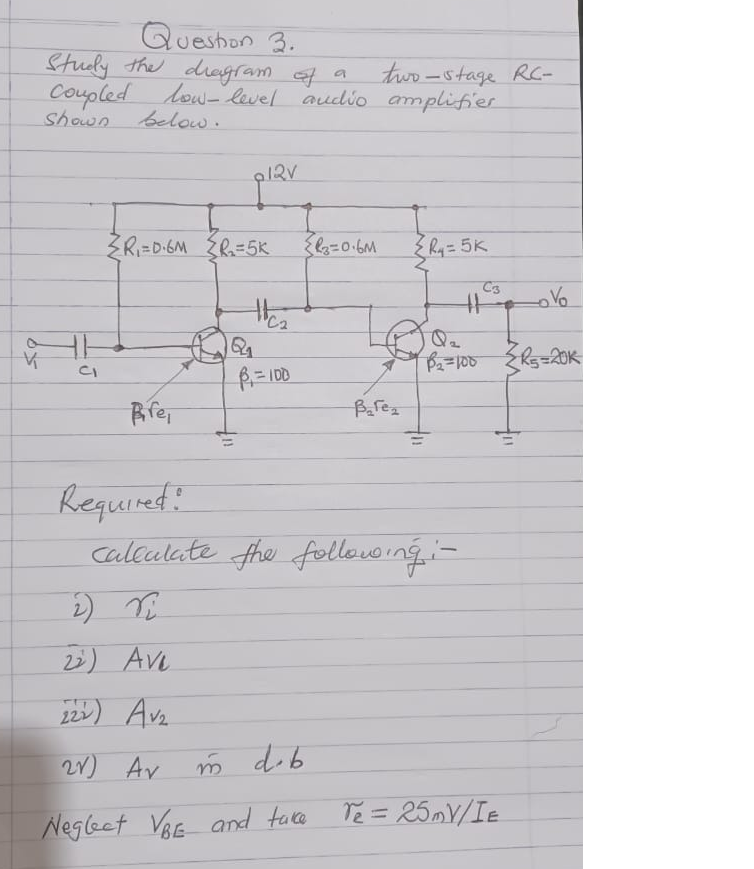 Question 3.
Study the diagram of a two-stage RC-
coupled low-level audio amplifier
shown below.
12V
R₁=0.6M R₂=5K R₃=0.6M R₄=5K
C₃
Vo
C₂
V₁ C₁ Q₁ Q₂ R₅=20K
β₁=100 β₂=100
β₁re₁ β₂re₂
Required:
Calculate the following:-
i) ri
ii) Av₁
iii) Av₂
iv) Av in d.b
Neglect VBE and take re = 25mV/IE